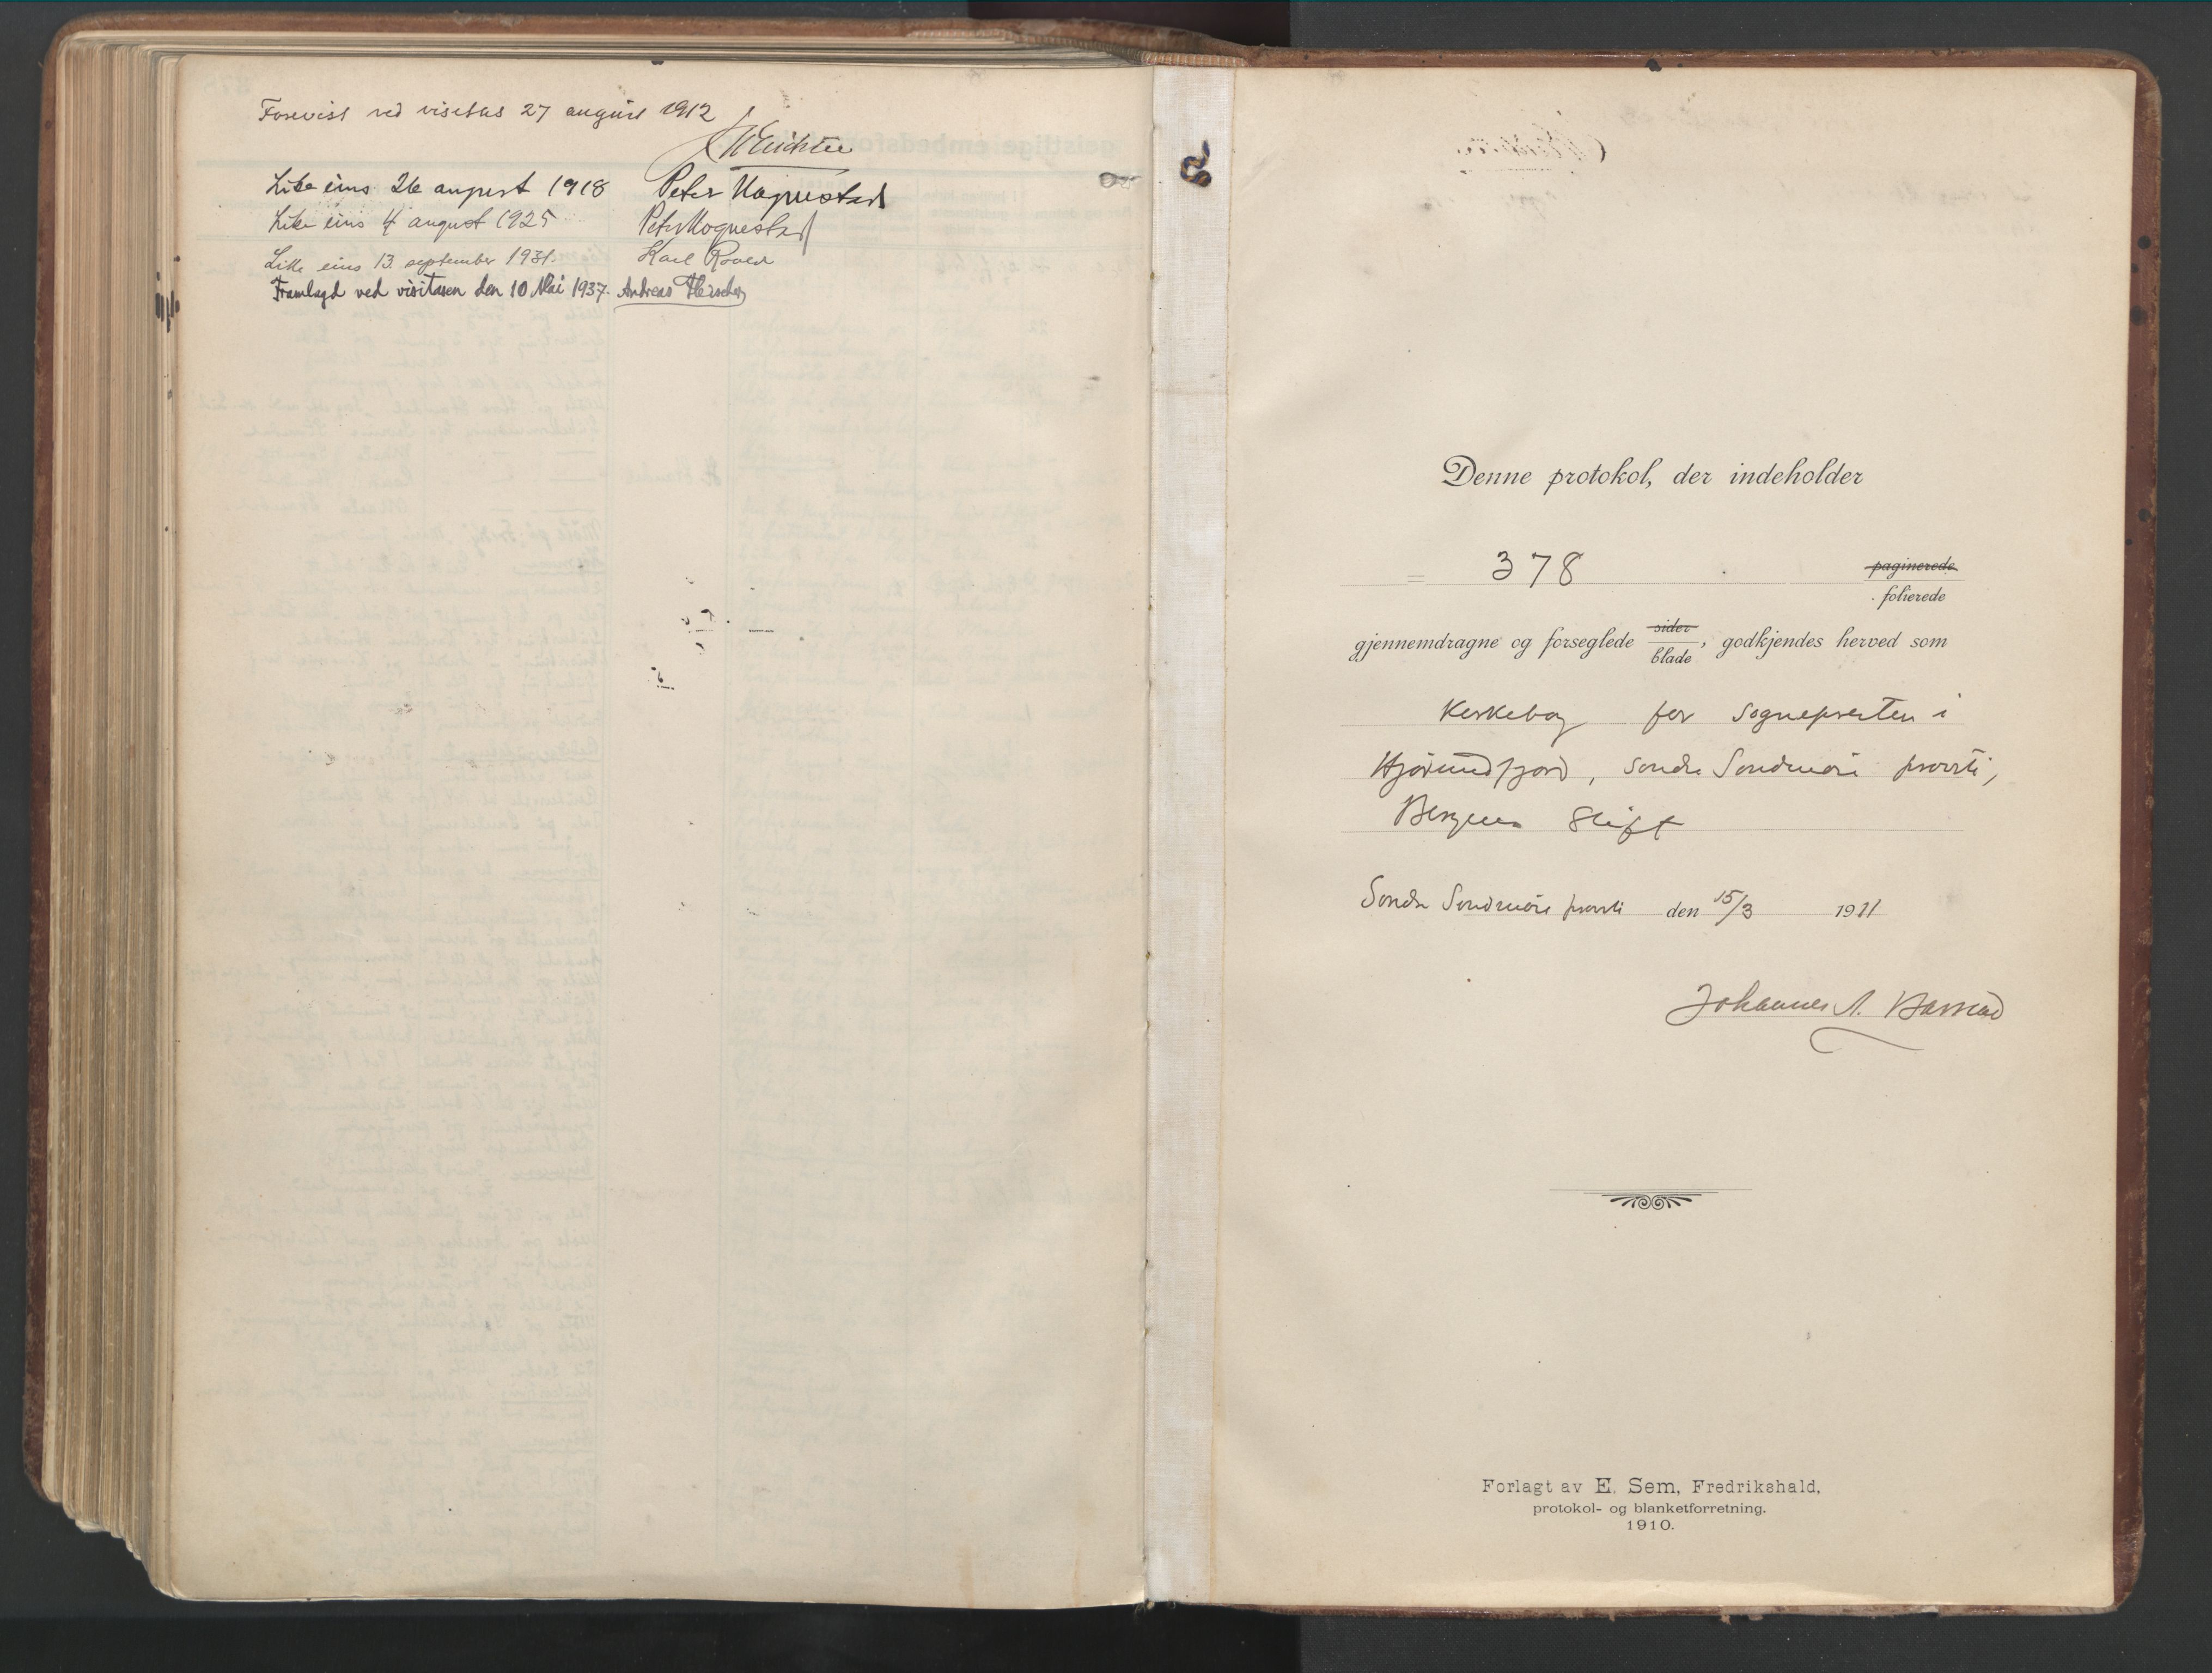 Forevist ved visitas 27 august 1912
Like eins 26 august 1918 Peter Hognestad
Like eins 4 august 1925 Peter Hognestad
Like eins 13. september 1931. Karl Roald
Framlagd ved visitasen den 10 Mai 1937. Andreas Fleischer
Denne protokol, der indeholder
= 378 paginerede
folierede
gjennemdragne og forseglede sider
blade, godkjendes herved som
Kirkebog for Sognepresten i
Hjørundfjord, Søndre Søndmøre provsti,
Bergens Stift
Søndre Søndmøre provsti den 15/3 1911
Johannes A. Barstad
Forlagt av E. Sem, Fredrikshald,
protokol- og blanketforretning.
1910.